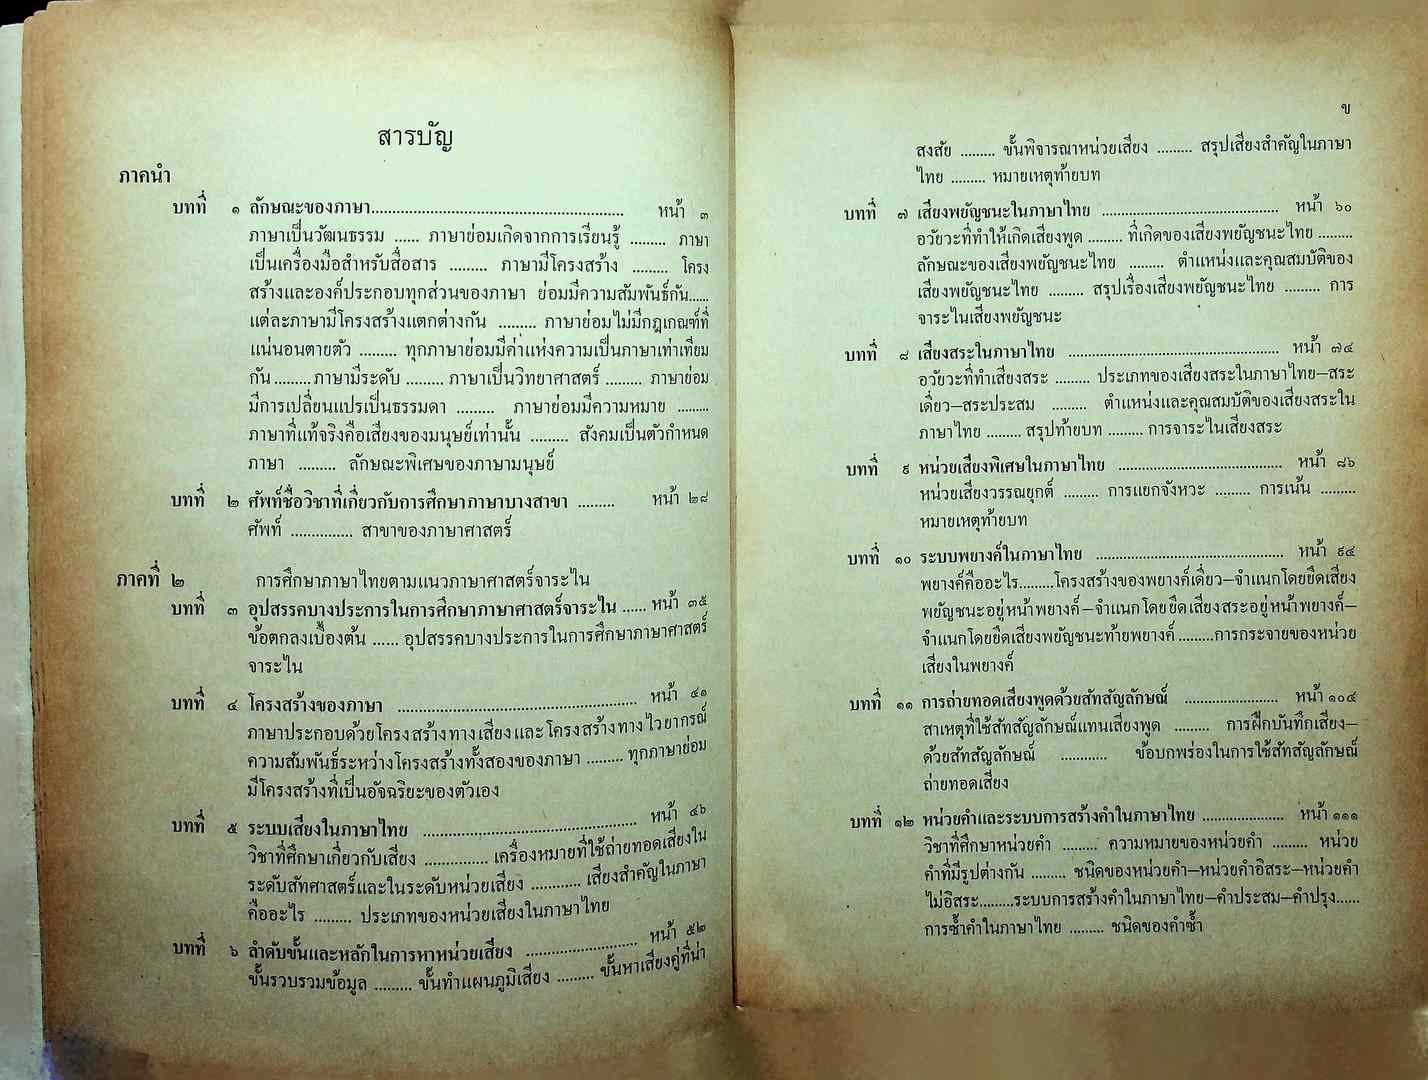 สารบัญ
ภาคนำ
บทที่ ๑ ลักษณะของภาษา............................................................ หน้า ๓
ภาษาเป็นวัฒนธรรม ...... ภาษาย่อมเกิดจากการเรียนรู้ ......... ภาษา
เป็นเครื่องมือสำหรับสื่อสาร ......... ภาษามีโครงสร้าง ......... โครง
สร้างและองค์ประกอบทุกส่วนของภาษา ย่อมมีความสัมพันธ์กัน......
แต่ละภาษามีโครงสร้างแตกต่างกัน ......... ภาษาย่อมไม่มีกฎเกณฑ์ที่
แน่นอนตายตัว ......... ทุกภาษาย่อมมีค่าแห่งความเป็นภาษาเท่าเทียม
กัน.........ภาษามีระดับ ......... ภาษาเป็นวิทยาศาสตร์ ......... ภาษาย่อม
มีการเปลี่ยนแปรเป็นธรรมดา ......... ภาษาย่อมมีความหมาย .........
ภาษาที่แท้จริงคือเสียงของมนุษย์เท่านั้น ......... สังคมเป็นตัวกำหนด
ภาษา ......... ลักษณะพิเศษของภาษามนุษย์
บทที่ ๒ ศัพท์ชื่อวิชาที่เกี่ยวกับการศึกษาภาษาบางสาขา ......... หน้า ๒๘
ศัพท์ ............... สาขาของภาษาศาสตร์
ภาคที่ ๒ การศึกษาภาษาไทยตามแนวภาษาศาสตร์จาระไน
บทที่ ๓ อุปสรรคบางประการในการศึกษาภาษาศาสตร์จาระไน ...... หน้า ๓๕
ข้อตกลงเบื้องต้น ...... อุปสรรคบางประการในการศึกษาภาษาศาสตร์
จาระไน
บทที่ ๔ โครงสร้างของภาษา ......................................................... หน้า ๔๑
ภาษาประกอบด้วยโครงสร้างทางเสียงและโครงสร้างทางไวยากรณ์
ความสัมพันธ์ระหว่างโครงสร้างทั้งสองของภาษา ......... ทุกภาษาย่อม
มีโครงสร้างที่เป็นอัจฉริยะของตัวเอง
บทที่ ๕ ระบบเสียงในภาษาไทย ................................................... หน้า ๔๖
วิชาที่ศึกษาเกี่ยวกับเสียง ............... เครื่องหมายที่ใช้ถ่ายทอดเสียงใน
ระดับสัทศาสตร์และในระดับหน่วยเสียง ............ เสียงสำคัญในภาษา
คืออะไร ......... ประเภทของหน่วยเสียงในภาษาไทย
บทที่ ๖ ลำดับขั้นและหลักในการหาหน่วยเสียง ........................... หน้า ๕๒
ขั้นรวบรวมข้อมูล ......... ขั้นทำแผนภูมิเสียง ......... ขั้นหาเสียงคู่ที่น่า
ข
สงสัย ......... ขั้นพิจารณาหน่วยเสียง ......... สรุปเสียงสำคัญในภาษา
ไทย ......... หมายเหตุท้ายบท
บทที่ ๗ เสียงพยัญชนะในภาษาไทย .......................................... หน้า ๖๐
อวัยวะที่ทำให้เกิดเสียงพูด ......... ที่เกิดของเสียงพยัญชนะไทย .........
ลักษณะของเสียงพยัญชนะไทย ......... ตำแหน่งและคุณสมบัติของ
เสียงพยัญชนะไทย ......... สรุปเรื่องเสียงพยัญชนะไทย ......... การ
จาระไนเสียงพยัญชนะ
บทที่ ๘ เสียงสระในภาษาไทย .................................................. หน้า ๗๔
อวัยวะที่ทำเสียงสระ ......... ประเภทของเสียงสระในภาษาไทย—สระ
เดี่ยว—สระประสม ......... ตำแหน่งและคุณสมบัติของเสียงสระใน
ภาษาไทย ......... สรุปท้ายบท ......... การจาระไนเสียงสระ
บทที่ ๙ หน่วยเสียงพิเศษในภาษาไทย ....................................... หน้า ๘๖
หน่วยเสียงวรรณยุกต์ ......... การแยกจังหวะ ......... การเน้น .........
หมายเหตุท้ายบท
บทที่ ๑๐ ระบบพยางค์ในภาษาไทย ............................................. หน้า ๙๔
พยางค์คืออะไร.........โครงสร้างของพยางค์เดี่ยว—จำแนกโดยยึดเสียง
พยัญชนะอยู่หน้าพยางค์—จำแนกโดยยึดเสียงสระอยู่หน้าพยางค์—
จำแนกโดยยึดเสียงพยัญชนะท้ายพยางค์.........การกระจายของหน่วย
เสียงในพยางค์
บทที่ ๑๑ การถ่ายทอดเสียงพูดด้วยสัทสัญลักษณ์ ...................... หน้า ๑๐๔
สาเหตุที่ใช้สัทสัญลักษณ์แทนเสียงพูด ......... การฝึกบันทึกเสียง—
ด้วยสัทสัญลักษณ์ ............ ข้อบกพร่องในการใช้สัทสัญลักษณ์
ถ่ายทอดเสียง
บทที่ ๑๒ หน่วยคำและระบบการสร้างคำในภาษาไทย .................... หน้า ๑๑๑
วิชาที่ศึกษาหน่วยคำ ......... ความหมายของหน่วยคำ ......... หน่วย
คำที่มีรูปต่างกัน ......... ชนิดของหน่วยคำ—หน่วยคำอิสระ—หน่วยคำ
ไม่อิสระ.........ระบบการสร้างคำในภาษาไทย—คำประสม—คำปรุง......
การซ้ำคำในภาษาไทย ......... ชนิดของคำซ้ำ